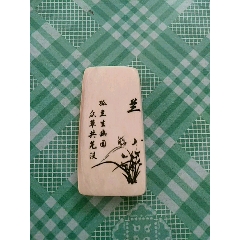 兰
孤兰生幽园
众草共芜没